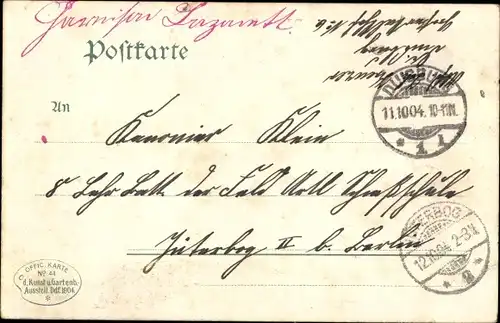 Garnison Lazarett
Postkarte
DUISBURG
11.10.04. 10-11N.
* 1 1
An
Kanonier Klein
8 Lehr Batt. der Feld Artl Schießschule
Jüterbog II b. Berlin
JÜTERBOG
12.10.04. 2-3N.
* 2 *
OFFIC. KARTE
No. 44
d. Kunst u. Gartenb.
Ausstell. Ddf. 1904